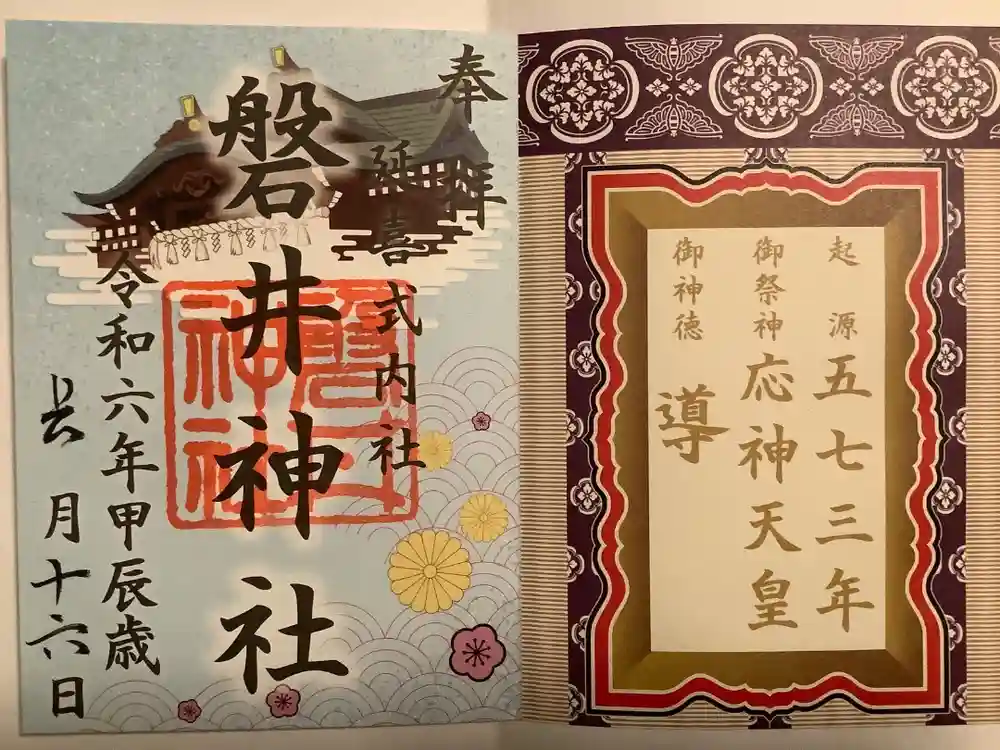 起源 五七三年
御祭神 応神天皇
御神徳 導
奉拝
延喜式内社
磐井神社
磐井神社
令和六年甲辰歳
長月十六日